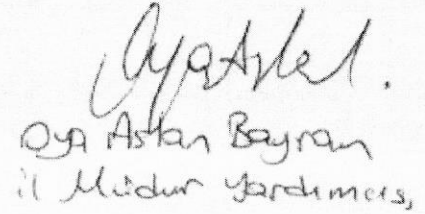 Oya Aslan Bayram
il Müdür Yardımcıs,